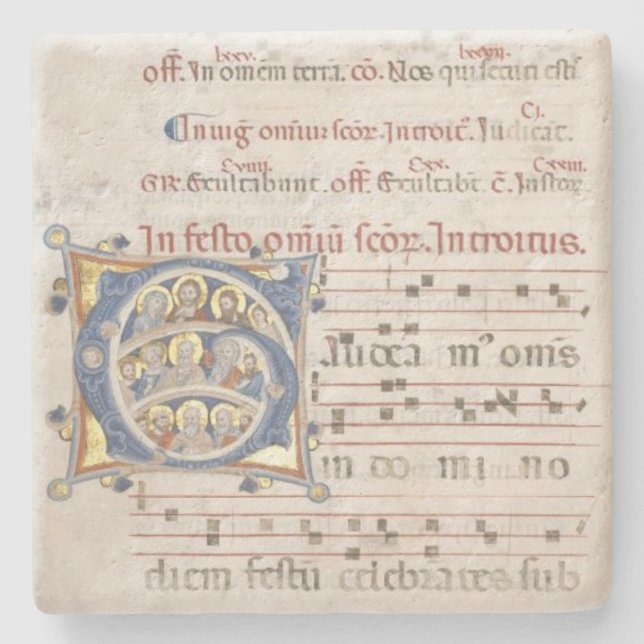 lxxv. lxxxvii.
off̄. In omēm terrā. cō. Nos qui secuti esti
Cj.
In uig̃ omīuꝫ scōꝝ. Introit⁹. Iudicāt.
Cviii. Cxx. Cxxiii.
GR. Exultabunt. off̄. Exultabt̄. c̄. Iustoꝝ
In festo omīū scōꝝ. Introitus.
Gaudea m⁹ oms̄
in do mi no
diem festū celebrātes sub